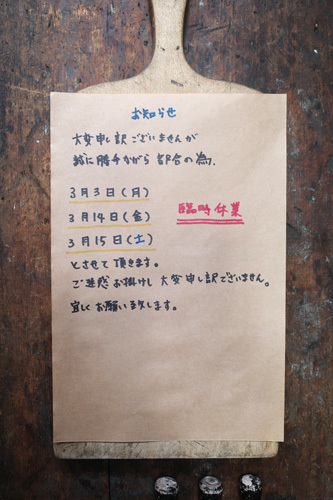 お知らせ
大変申し訳ございませんが
誠に勝手ながら 都合の為、
3月3日(月)
3月14日(金)
3月15日(土)
臨時休業
とさせて頂きます。
ご迷惑お掛けし大変申し訳でございません。
宜しくお願い致します。